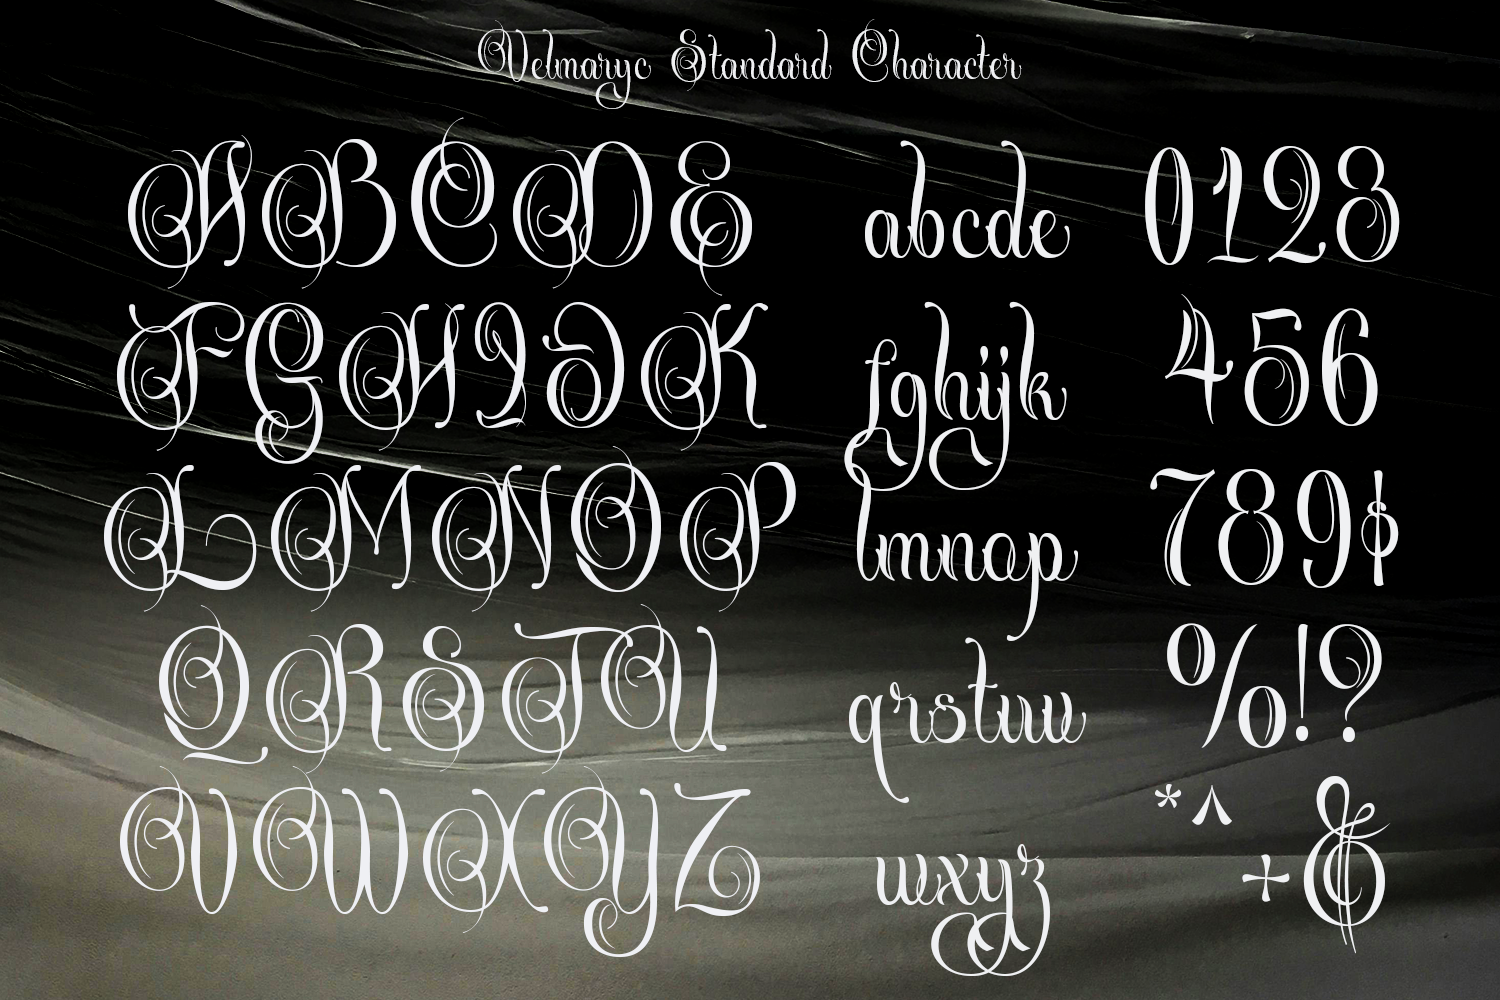 Velmaryc Standard Character
ABCDE
abcde
0123
FGHIJK
fghijk
456
LMNOP
lmnop
789$
QRSTU
qrstuv
%!?
VWXYZ
wxyz
*^
+&